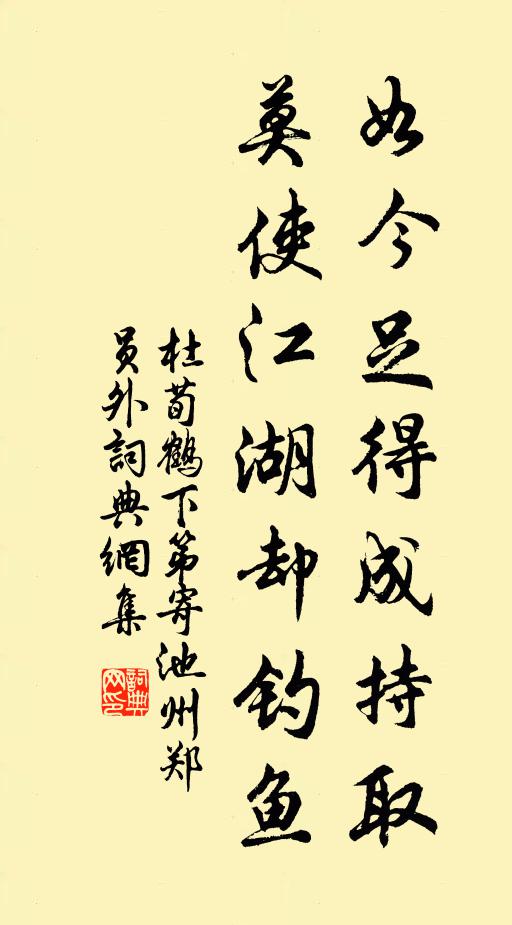 如今足得成持取
莫使江湖却钓鱼
杜荀鹤下第寄池州郑
员外詞典網集
詞典网印